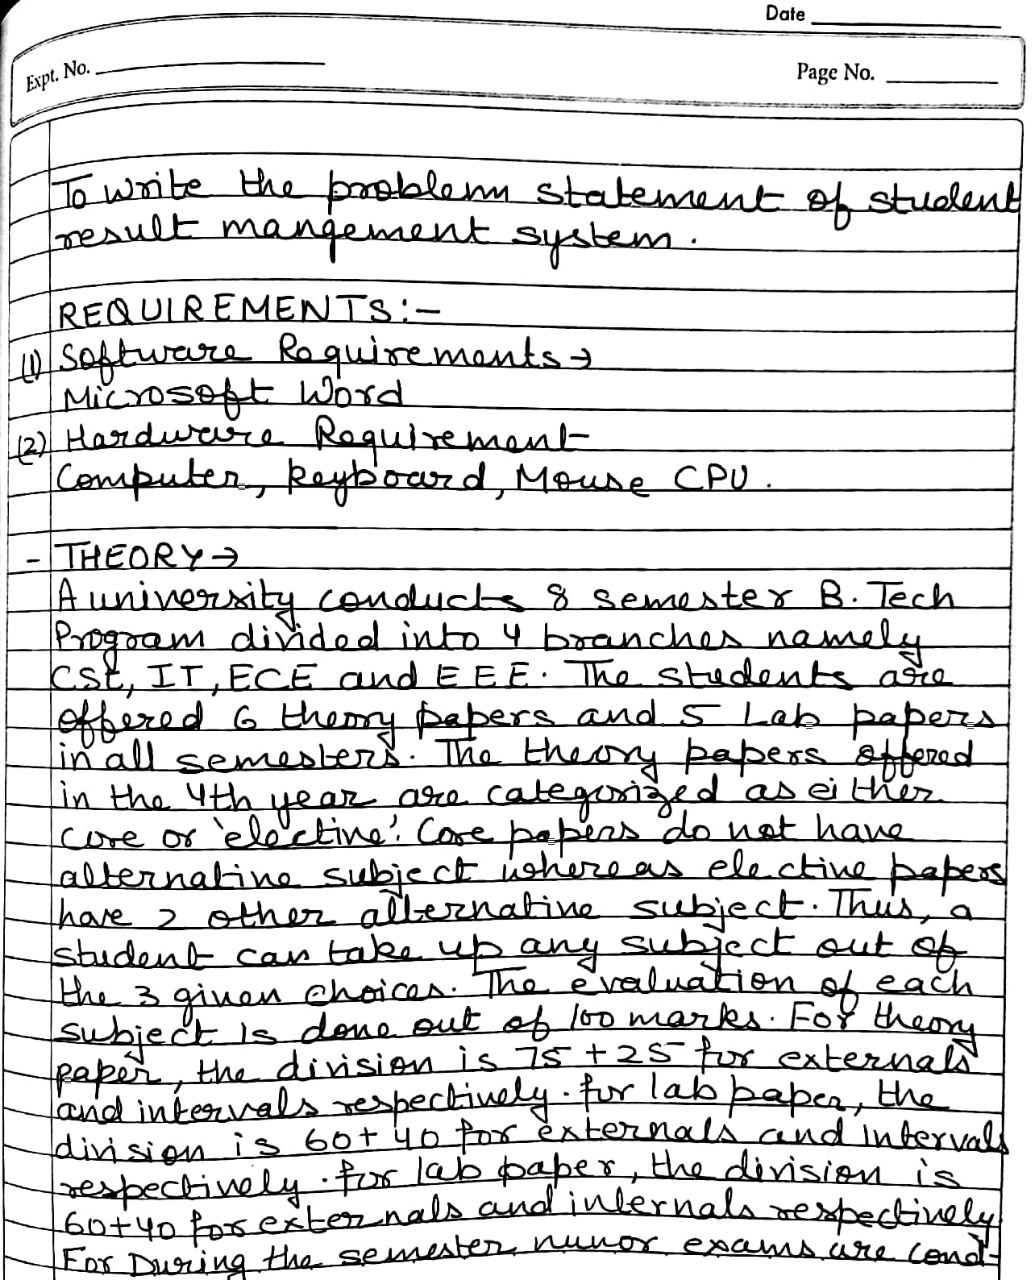 Date
Expt. No.
Page No.
To write the problem statement of student
result mangement system.
REQUIREMENTS:-
(1) Software Requirements →
Microsoft Word
(2) Hardware Requirement
Computer, keyboard, Mouse CPU.
- THEORY →
A university conducts 8 semester B. Tech
Program divided into 4 branches namely
CSE, IT, ECE and EEE. The students are
offered 6 theory papers and 5 Lab papers
in all semesters. The theory papers offered
in the 4th year are categorized as either
core or 'elective'. Core papers do not have
alternative subject whereas elective papers
have 2 other alternative subject. Thus, a
student can take up any subject out of
the 3 given choices. The evaluation of each
subject is done out of 100 marks. For theory
paper, the division is 75+25 for externals
and intervals respectively. for lab paper, the
division is 60+40 for externals and intervals
respectively. for lab paper, the division is
60+40 for externals and internals respectively
For During the semester, minor exams are cond-